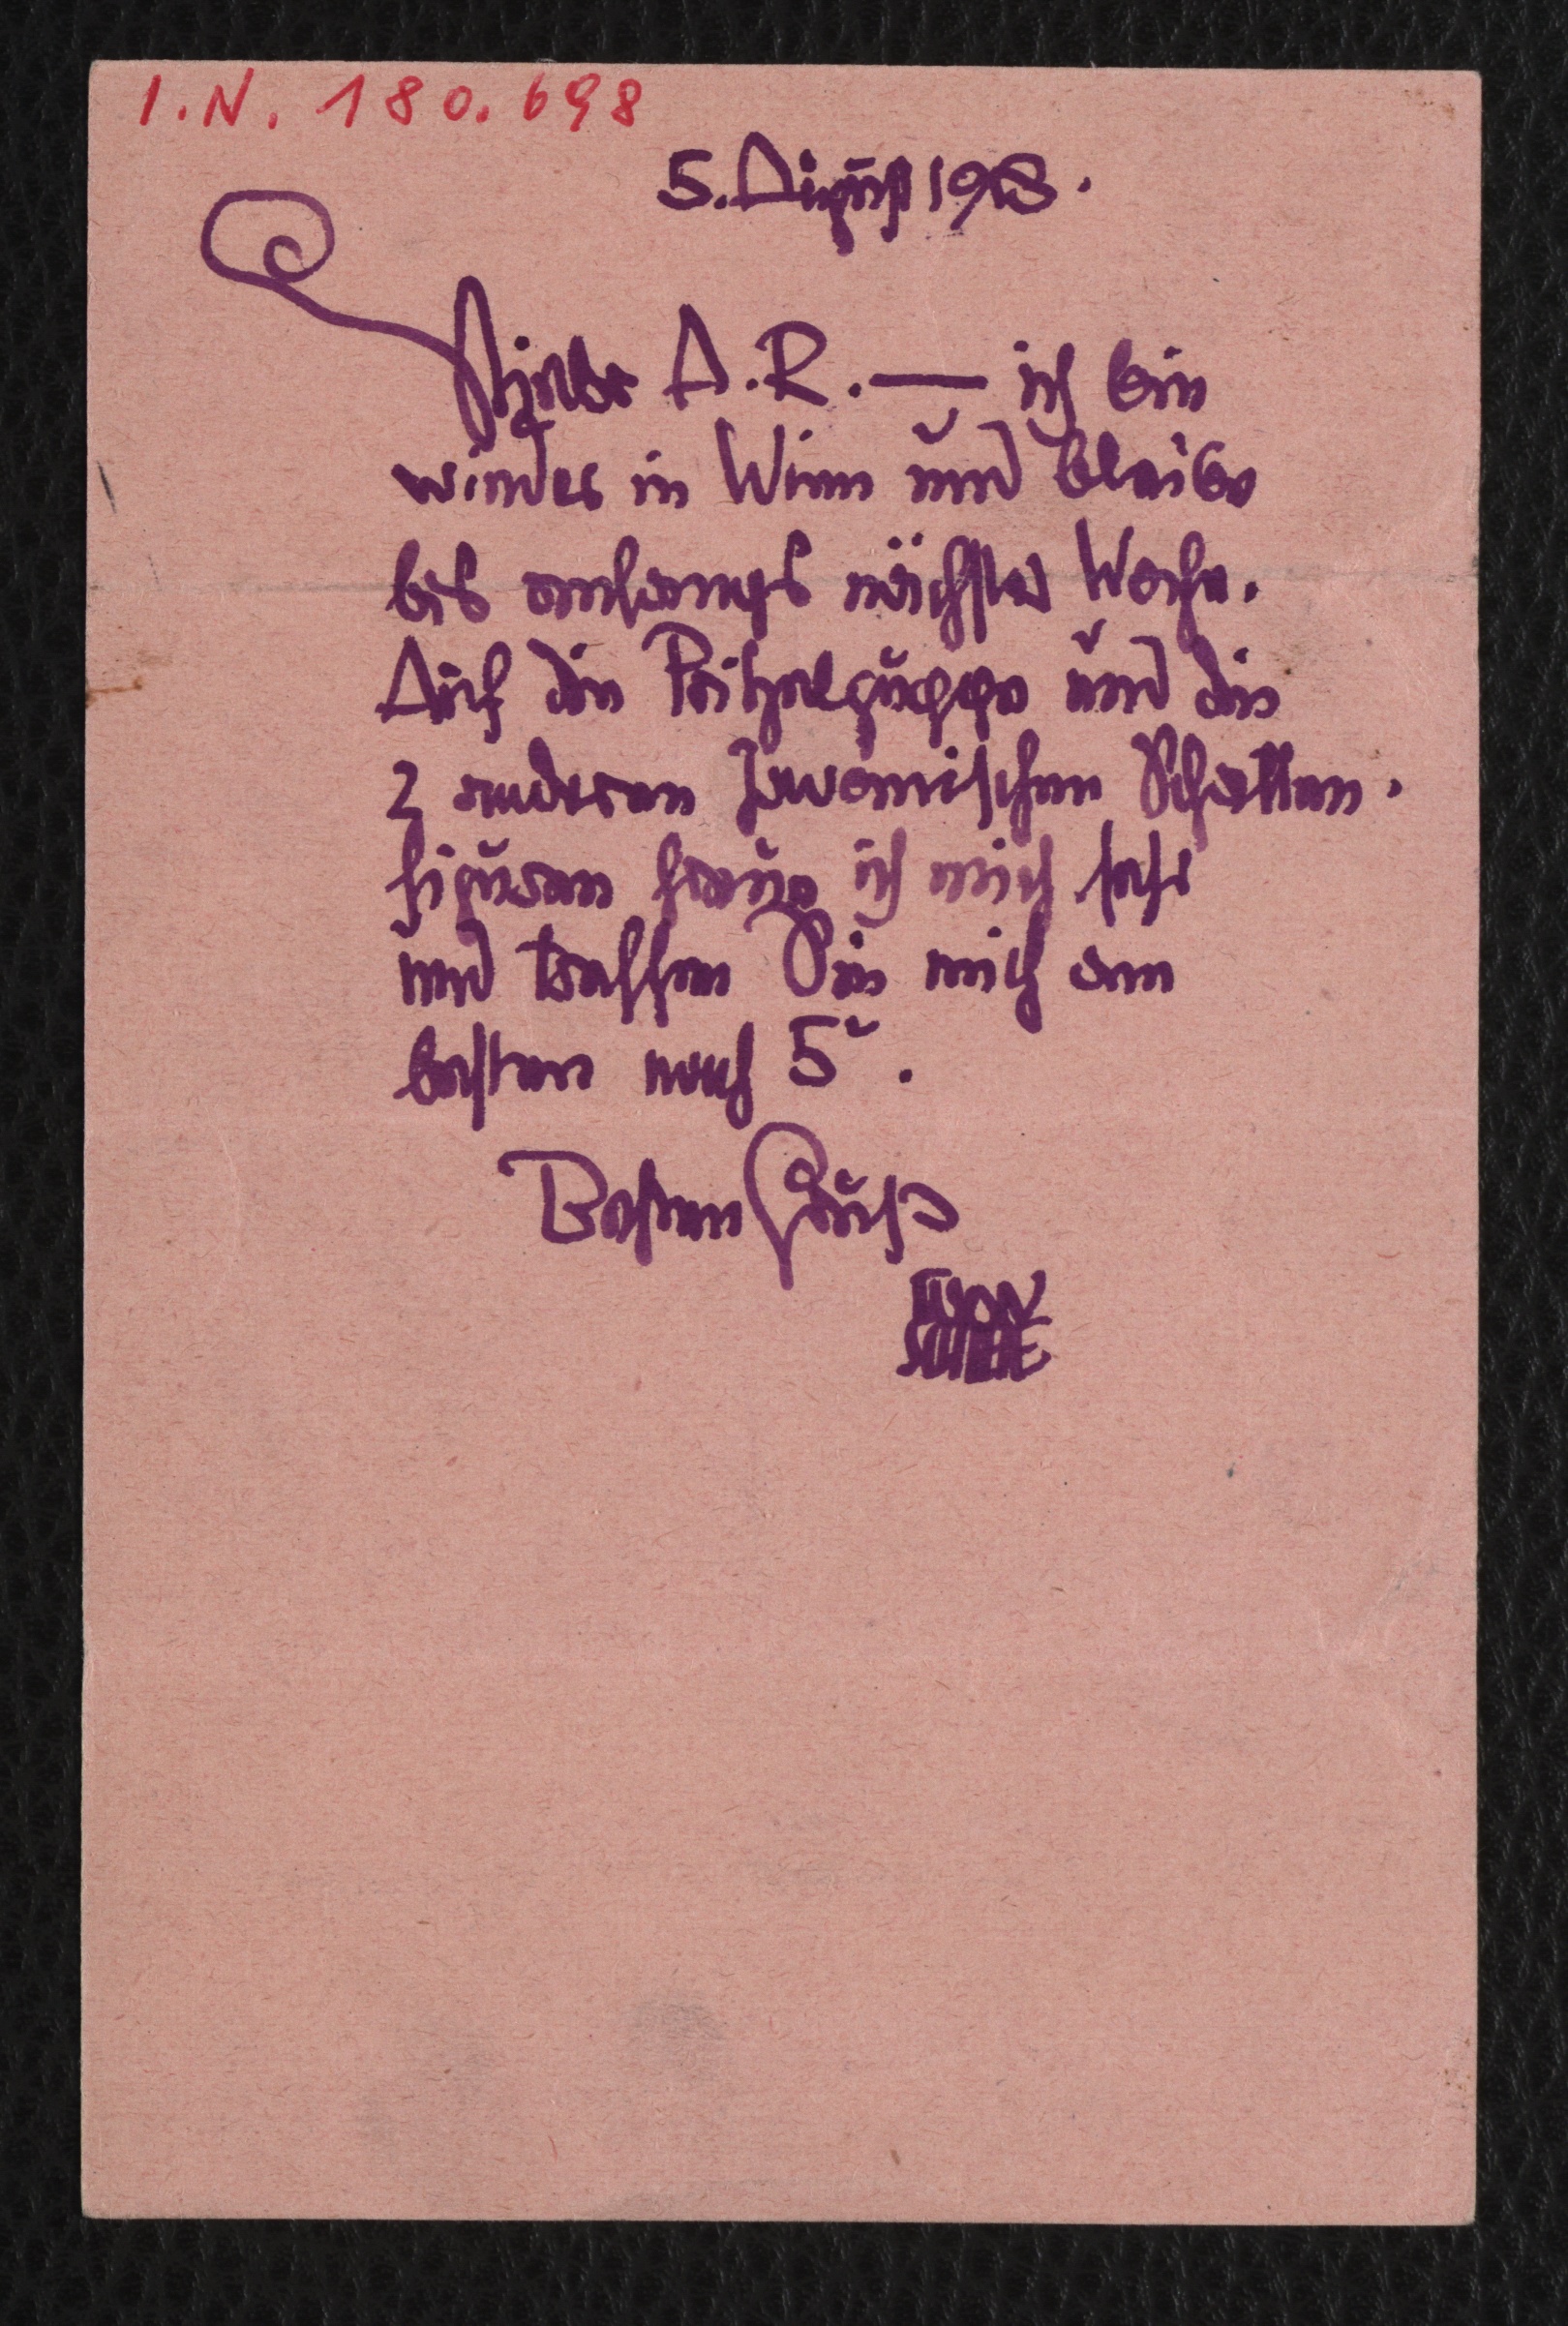 I.N. 180.698
5. August 1918.
Lieber A.R. — ich bin
wieder in Wien und bleibe
bis anfangs nächster Woche.
Auf die und die
2 anderen Javanischen Schatten-
figuren freue ich mich sehr
und treffen Sie mich am
besten nach 5ʰ.
Besten Gruß
EGON
SCHIELE